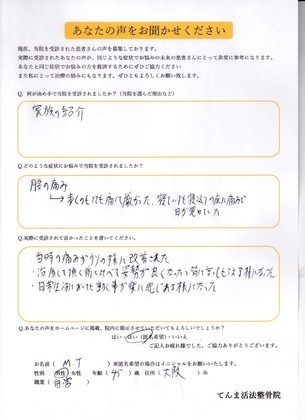 あなたの声をお聞かせください
現在、当院を受診された患者さんの声を募集しております。
実際に受診されたあなたの声が、同じような症状でお悩みの未来の患者さんにとって非常に参考になります。
あなたと同じ症状でお悩みの方を救済するためにぜひご協力ください
また私にとって治療の励みにもなります。ぜひともよろしくお願い致します。
Q. 何が決め手で当院を受診されましたか？（当院を選んだ理由など）
家族の紹介
Q.どのような症状にお悩みで当院を受診されましたか？
腰の痛み
→歩くのもとても痛くて厳かった、寝ていても寝返りの度に痛みで
目が覚めていた
Q.実際に受診されて良かったことを書いてください。
・当時の痛みがウソの様に改善された
・治療して頂く前に比べて姿勢が良くなったと周りに言ってもらえる様になった
・日常生活においても動く事が楽に感じある様になった
Q.あなたの声をホームページに掲載、院内に掲示させていただいてもよろしいでしょうか？
はい・はい（匿名希望）・いいえ
ご記入お疲れ様でした。ご協力ありがとうございます。
お名前（ M.T ）※匿名希望の場合はイニシャルをお願いいたします。
性別 男性 女性 年齢（ 45 ）歳 住所（ 大阪 ）市
職業（ 自営 ）
てんま活法整骨院